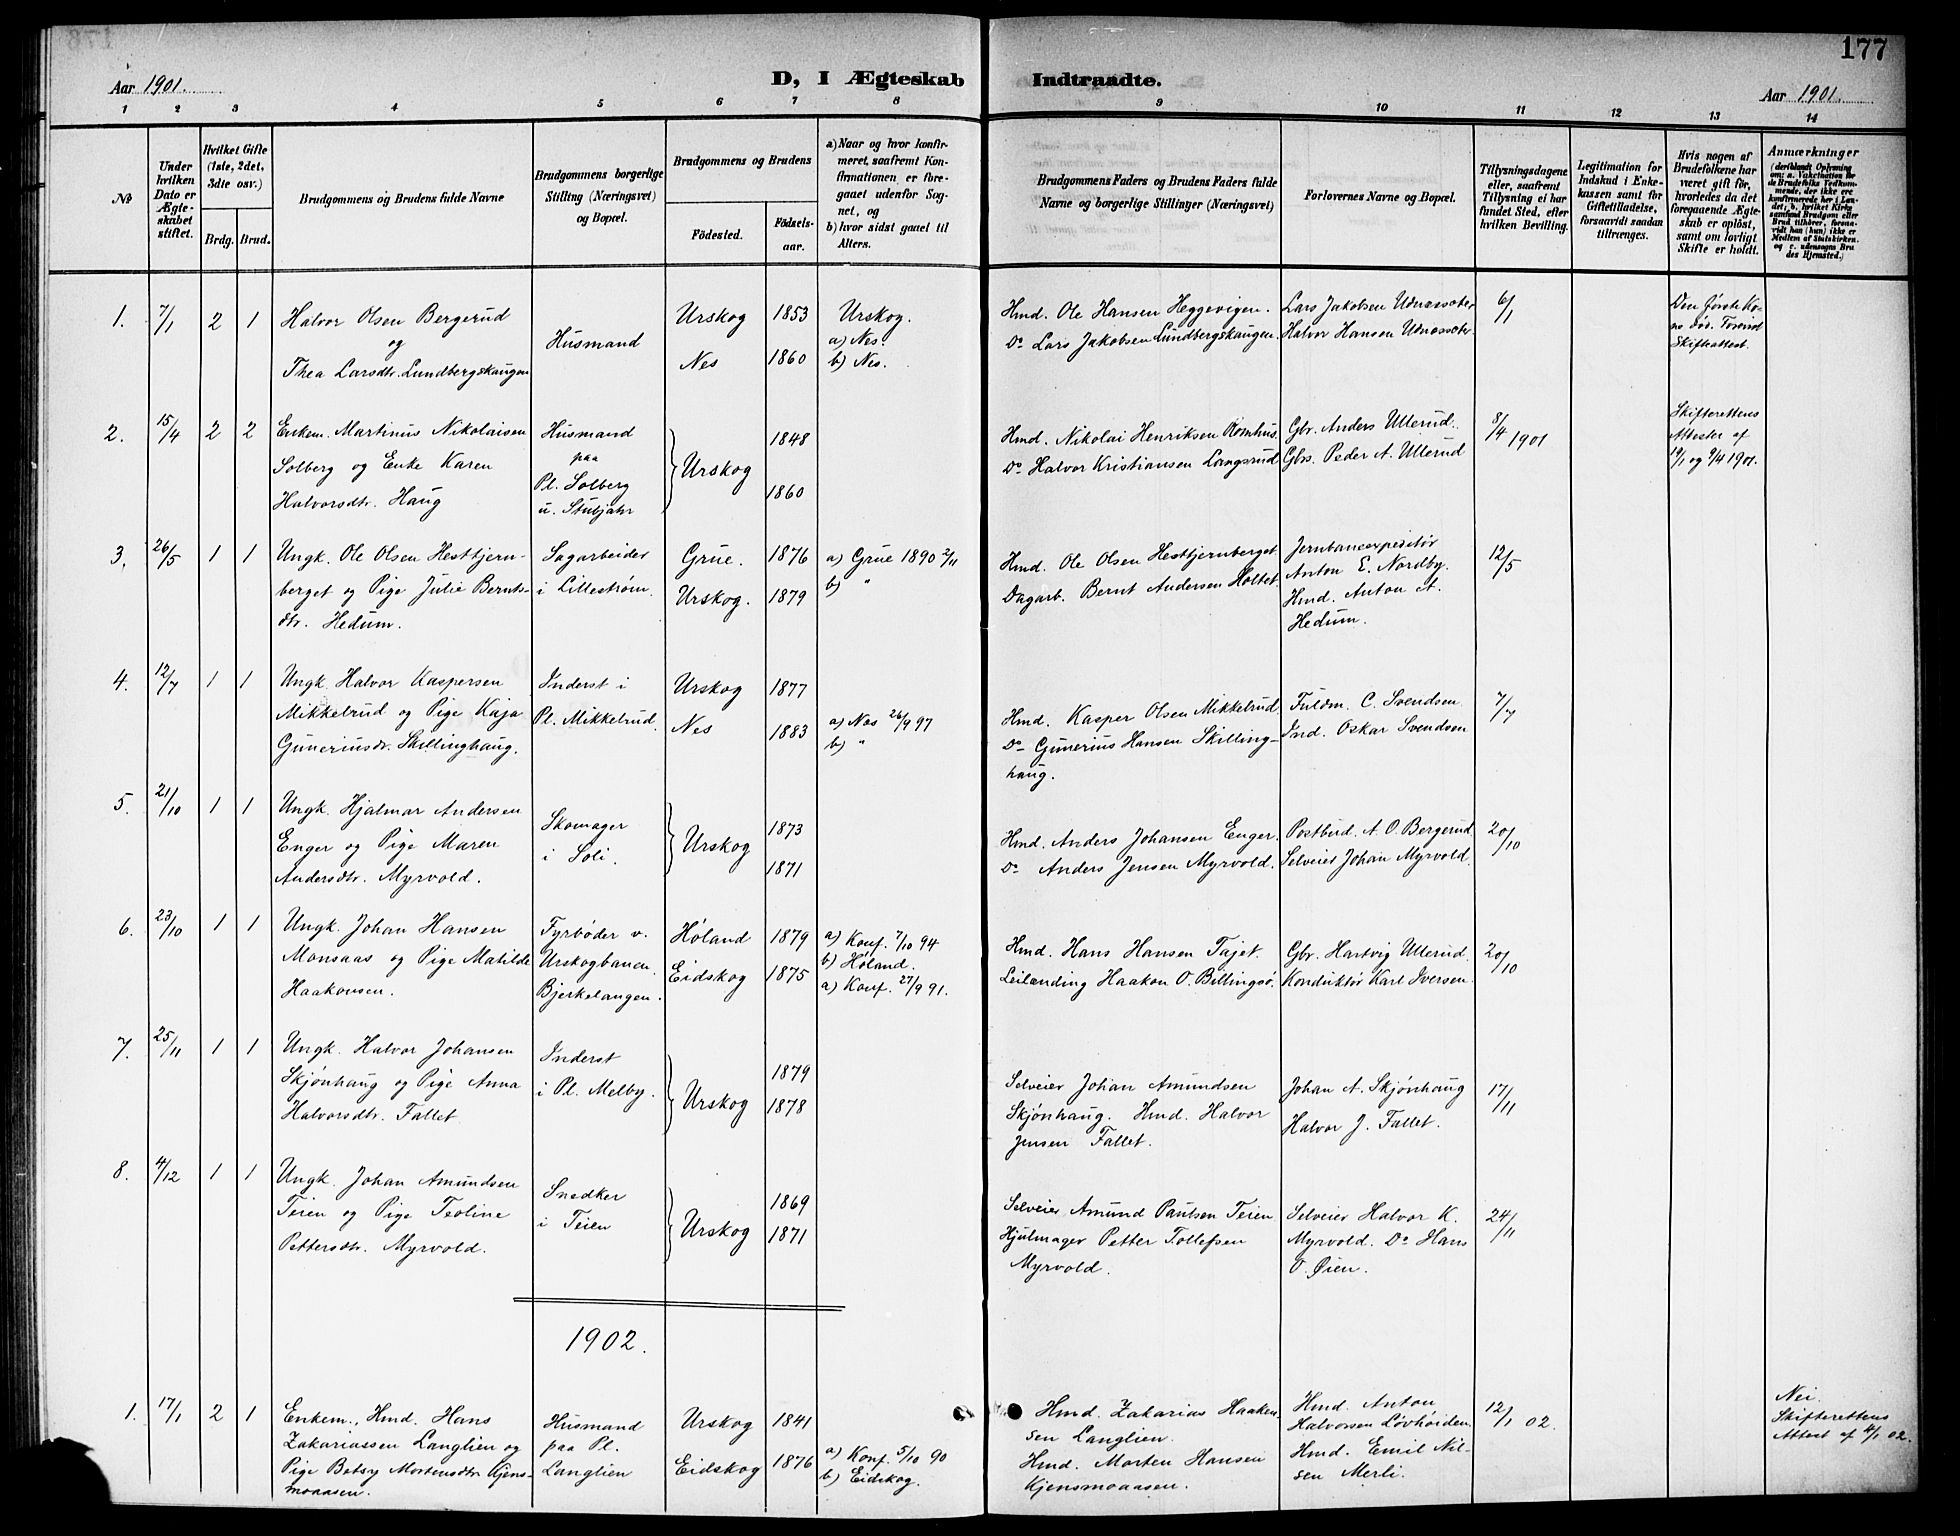 177
D, I Ægteskab Indtraadte.
Aar 1901.
Aar 1901.
1 2 3 4 5 6 7 8 9 10 11 12 13 14
№
Under hvilken Dato er Ægteskabet stiftet.
Hvilket Gifte (1ste, 2det, 3die osv.)
Brdg. Brud.
Brudgommens og Brudens fulde Navne
Brudgommens borgerlige Stilling (Næringsvei) og Bopæl.
Brudgommens og Brudens
Fødested.
Födselsaar.
a) Naar og hvor konfirmeret, saafremt Konfirmationen er foregaaet udenfor Sognet, og
b) hvor sidst gaaet til Alters.
Brudgommens Faders og Brudens Faders fulde Navne og borgerlige Stillinger (Næringsvei)
Forlovernes Navne og Bopæl.
Tillysningsdagene eller, saafremt Tillysning ei har fundet Sted, efter hvilken Bevilling.
Legitimation for Indskud i Enkekassen samt for Giftetilladelse, forsaavidt saadan tiltrænges.
Hvis nogen af Brudefolkene har været gift før, hvorledes da det foregaaende Ægteskab er opløst, samt om lovligt Skifte er holdt.
Anmærkninger
1. 7/1 2 1
Halvor Olsen Bergerud
og
Thea Larsdtr. Lundbergskaugen
Husmand
Urskog 1853
Nes 1860
Urskog.
a) Nes.
b) Nes.
Hmd. Ole Hansen Heggevigen.
Do Lars Jakobsen Lundbergskaugen.
Lars Jakobsen Udnæssæter
Halvor Hansen Udnæssætr.
6/1
Den første Kone død. Forevist
Skifteattest.
2. 15/4 2 2
Enkem. Martinus Nikolaisen
Solberg og Enke Karen
Halvorsdtr. Haug
Husmand
paa
Pl. Solberg
u. Stubjahr
Urskog
1848
1860
Hmd. Nikolai Henriksen Romhus.
Do Halvor Kristiansen Langsrud
Gbr. Anders Ullerud.
Gbs. Peder A. Ullerud
8/4 1901
Skifterettens
Attester af
19/1 og 9/4 1901.
3. 26/5 1 1
Ungk. Ole Olsen Hesttjern-
berget og Pige Julie Bernts-
dtr. Hedum.
Sagarbeider
i Lillestrøm.
Grue. 1876
Urskog. 1879
a) Grue 1890 2/11
b) "
Hmd. Ole Olsen Hesttjernberget.
Dagarb. Bernt Andersen Holtet.
Jernbaneexpeditør
Anton E. Nordby.
Hmd. Anton A.
Hedum.
12/5
4. 12/7 1 1
Ungk. Halvor Kaspersen
Mikkelrud og Pige Kaja
Guneriusdr. Skillinghaug.
Inderst i
Pl. Mikkelrud.
Urskog 1877
Nes 1883
a) Nes 26/9 97
b) "
Hmd. Kasper Olsen Mikkelrud.
Do Gunerius Hansen Skilling-
haug.
Fuldm. C. Svendsen.
Ind. Oskar Svendsen
7/7
5. 21/10 1 1
Ungk. Hjalmar Andersen
Enger og Pige Maren
Andersdtr. Myrvold.
Skomager
i Soli.
Urskog
1873
1871
Hmd. Anders Johansen Enger.
Do Anders Jensen Myrvold.
Postbud. A. O. Bergerud.
Selveier Johan Myrvold.
20/10
6. 23/10 1 1
Ungk. Johan Hansen
Monsaas og Pige Matilde
Haakonsen.
Fyrbøder v.
Urskogbanen.
Bjerkelangen.
Høland 1879
Eidskog 1875
a) Konf. 7/10 94
b) Høland.
a) Konf. 27/9 91.
Hmd. Hans Hansen Tajet.
Leilænding Haakon O. Billingsø.
Gbr. Hartvig Ullerud.
Konduktør Karl Iversen.
20/10
7. 25/11 1 1
Ungk. Halvor Johansen
Skjønhaug og Pige Anna
Halvorsdtr. Fallet.
Inderst
i Pl. Melby.
Urskog
1879
1878
Selveier Johan Amundsen
Skjønhaug. Hmd. Halvor
Jensen Fallet.
Johan A. Skjønhaug
Halvor J. Fallet.
17/11
8. 4/12 1 1
Ungk. Johan Amundsen
Teien og Pige Teoline
Pettersdtr. Myrvold.
Snedker
i Teien
Urskog
1869
1871
Selveier Amund Paulsen Teien
Hjulmager Petter Tollefsen
Myrvold.
Selveier Halvor K.
Myrvold. Do Hans
O. Øien.
24/11
1902.
1. 17/1 2 1
Enkem., Hmd. Hans
Zakariassen Langlien og
Pige Betsy Mortensdtr. Kjens-
moaasen.
Husmand
paa Pl.
Langlien
Urskog 1841
Eidskog 1876
a) Konf. 5/10 90
b) Eidskog.
Hmd. Zakarias Haaken-
sen Langlien.
Hmd. Morten Hansen
Kjensmoaasen.
Hmd. Anton
Halvorsen Løvhøiden.
Hmd. Emil Nil-
sen Merli.
12/1 02.
Nei.
Skifterettens
Attest af 4/1 02.